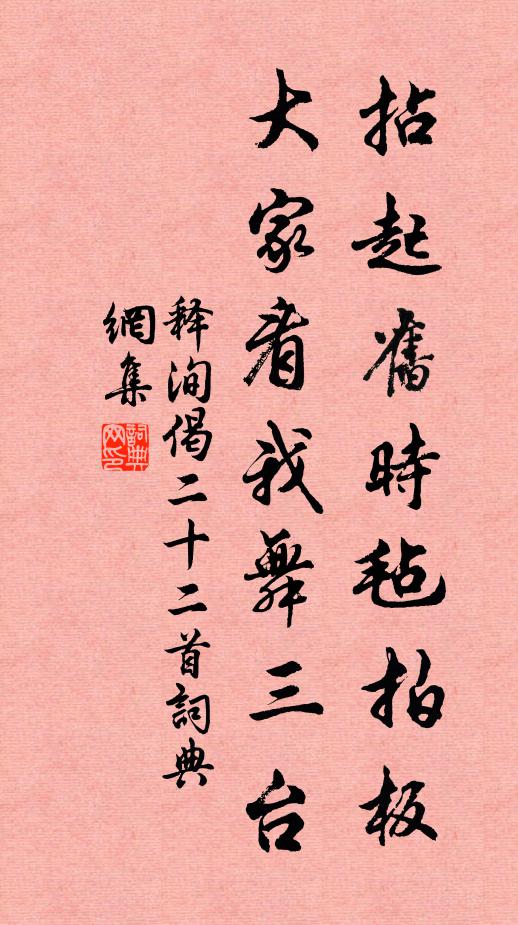 拈起舊時毡拍板
大家看我舞三台
释洵偈二十二首詞典
網集
詞典
网印